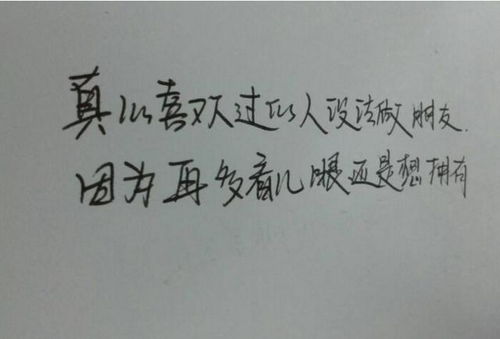 真心喜欢过的人没法做朋友.
因为再多看几眼还是想拥有